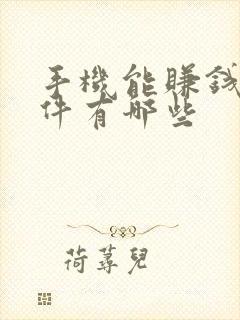 手機能賺錢
件有哪些
荷蕁兒